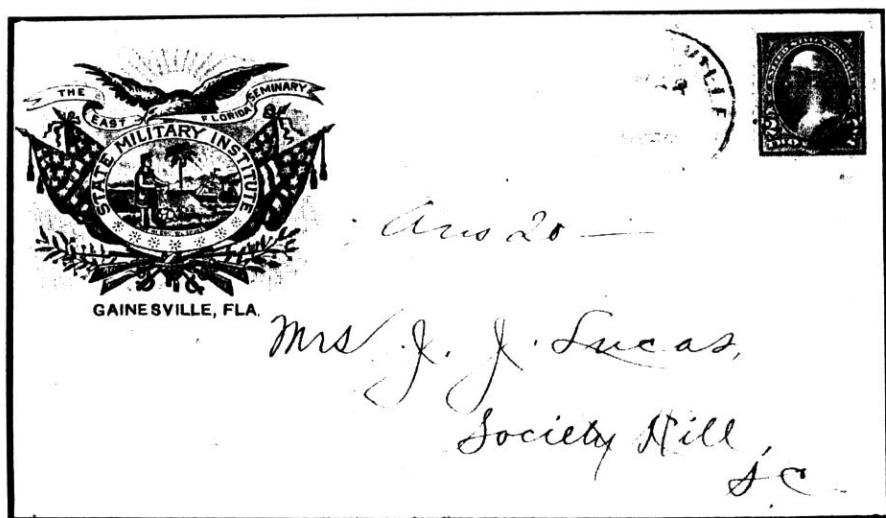 THE EAST FLORIDA SEMINARY
STATE MILITARY INSTITUTE
GAINESVILLE, FLA.
UNITED STATES POSTAGE
Ans 20 —
Mrs J. J. Lucas,
Society Hill,
S C.